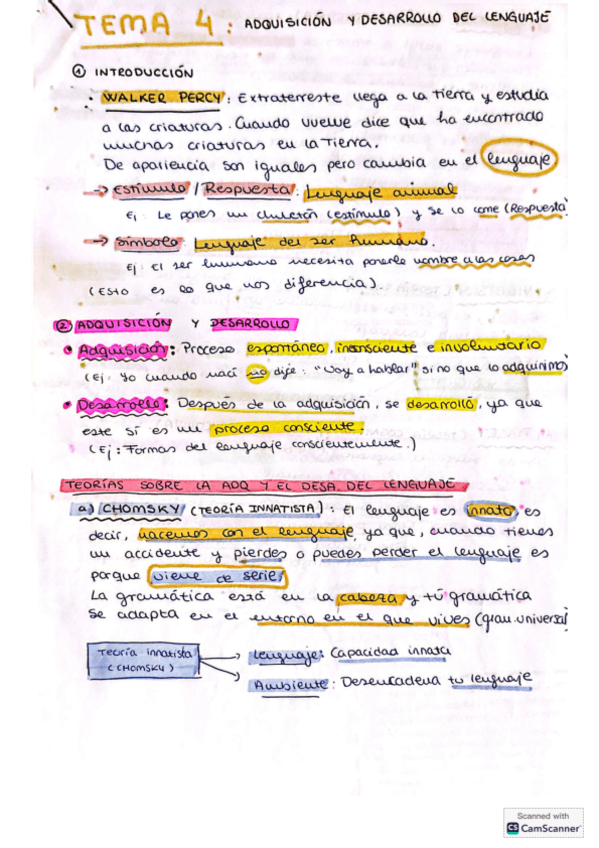 TEMA 4: ADQUISICIÓN Y DESARROLLO DEL LENGUAJE
① INTRODUCCIÓN
· WALKER PERCY: Extraterreste llega a la tierra y estudia
a las criaturas. Cuando vuelve dice que ha encontrado
muchas criaturas en la Tierra.
De apariencia son iguales pero cambia en el lenguaje
→ Estímulo / Respuesta: Lenguaje animal
Ej: Le pones un chuletón (estímulo) y se lo come (Respuesta)
→ Símbolo: Lenguaje del ser humano.
Ej: El ser humano necesita ponerle nombre a las cosas
(Esto es lo que nos diferencia).
② ADQUISICIÓN Y DESARROLLO
• Adquisición: Proceso espontáneo, inconsciente e involuntario
(Ej: Yo cuando nací no dije: "Voy a hablar" si no que lo adquirimos)
• Desarrollo: Después de la adquisición, se desarrolló, ya que
este sí es un proceso consciente.
(Ej: Formas del lenguaje conscientemente.)
TEORÍAS SOBRE LA ADQ Y EL DESA. DEL LENGUAJE
a) CHOMSKY (TEORÍA INNATISTA): El lenguaje es innato, es
decir, nacemos con el lenguaje, ya que, cuando tienes
un accidente y pierdes o puedes perder el lenguaje es
porque viene de serie.
La gramática está en la cabeza y tú gramática
se adapta en el entorno en el que vives (gram. universal)
Teoría innatista
(CHOMSKY)
Lenguaje: Capacidad innata
Ambiente: Desencadena tu lenguaje
Scanned with
CS CamScanner